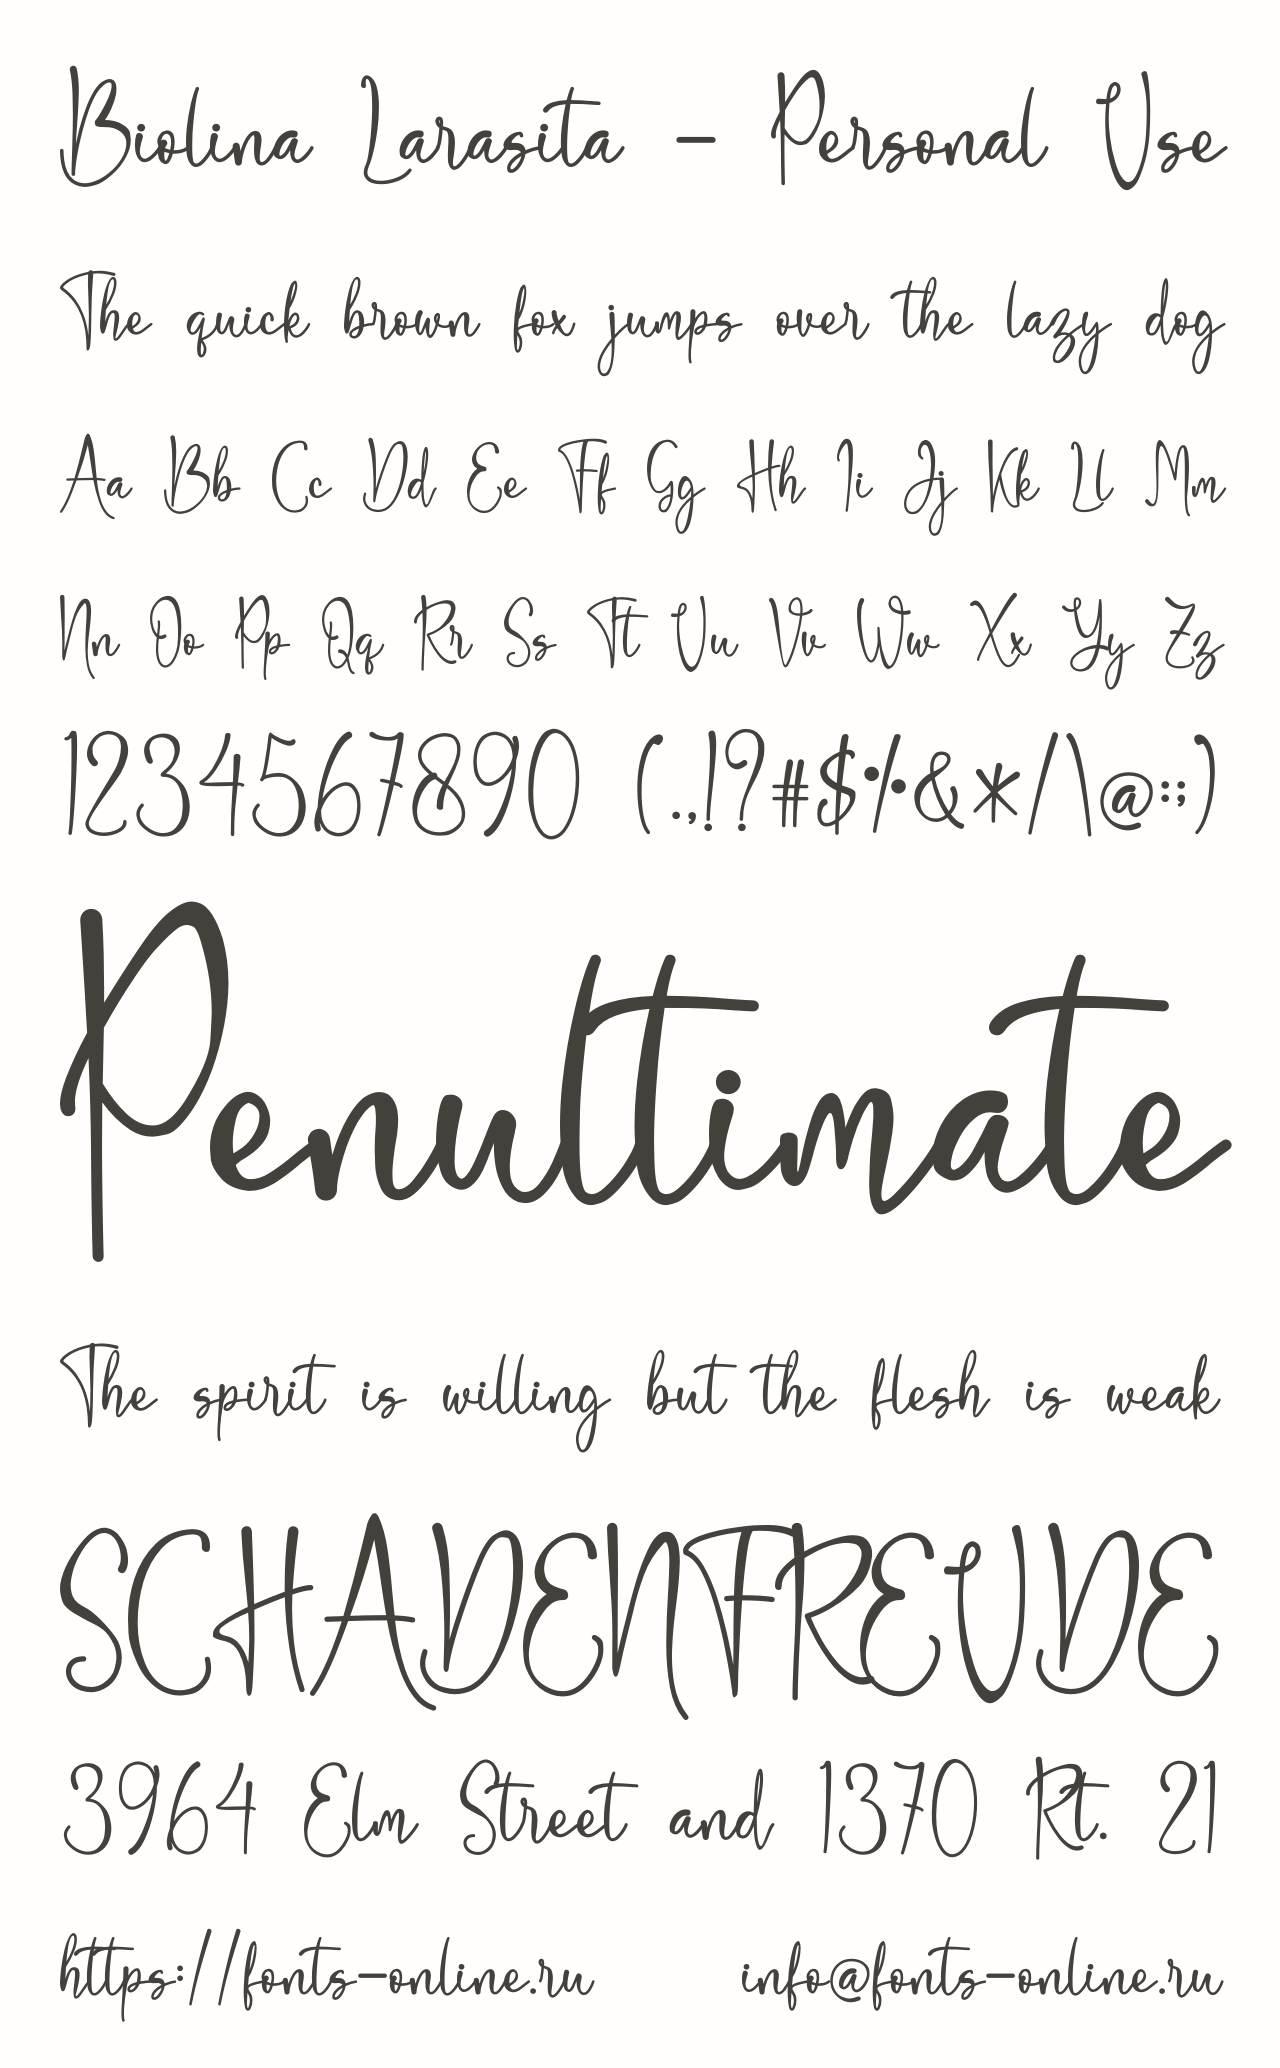 Biolina Larasita - Personal Use
The quick brown fox jumps over the lazy dog
Aa Bb Cc Dd Ee Ff Gg Hh Ii Jj Kk Ll Mm
Nn Oo Pp Qq Rr Ss Tt Uu Vv Ww Xx Yy Zz
1234567890 (.,!?#$%&*/\@:;)
Penultimate
The spirit is willing but the flesh is weak
SCHADENFREUDE
3964 Elm Street and 1370 Rt. 21
https://fonts-online.ru info@fonts-online.ru